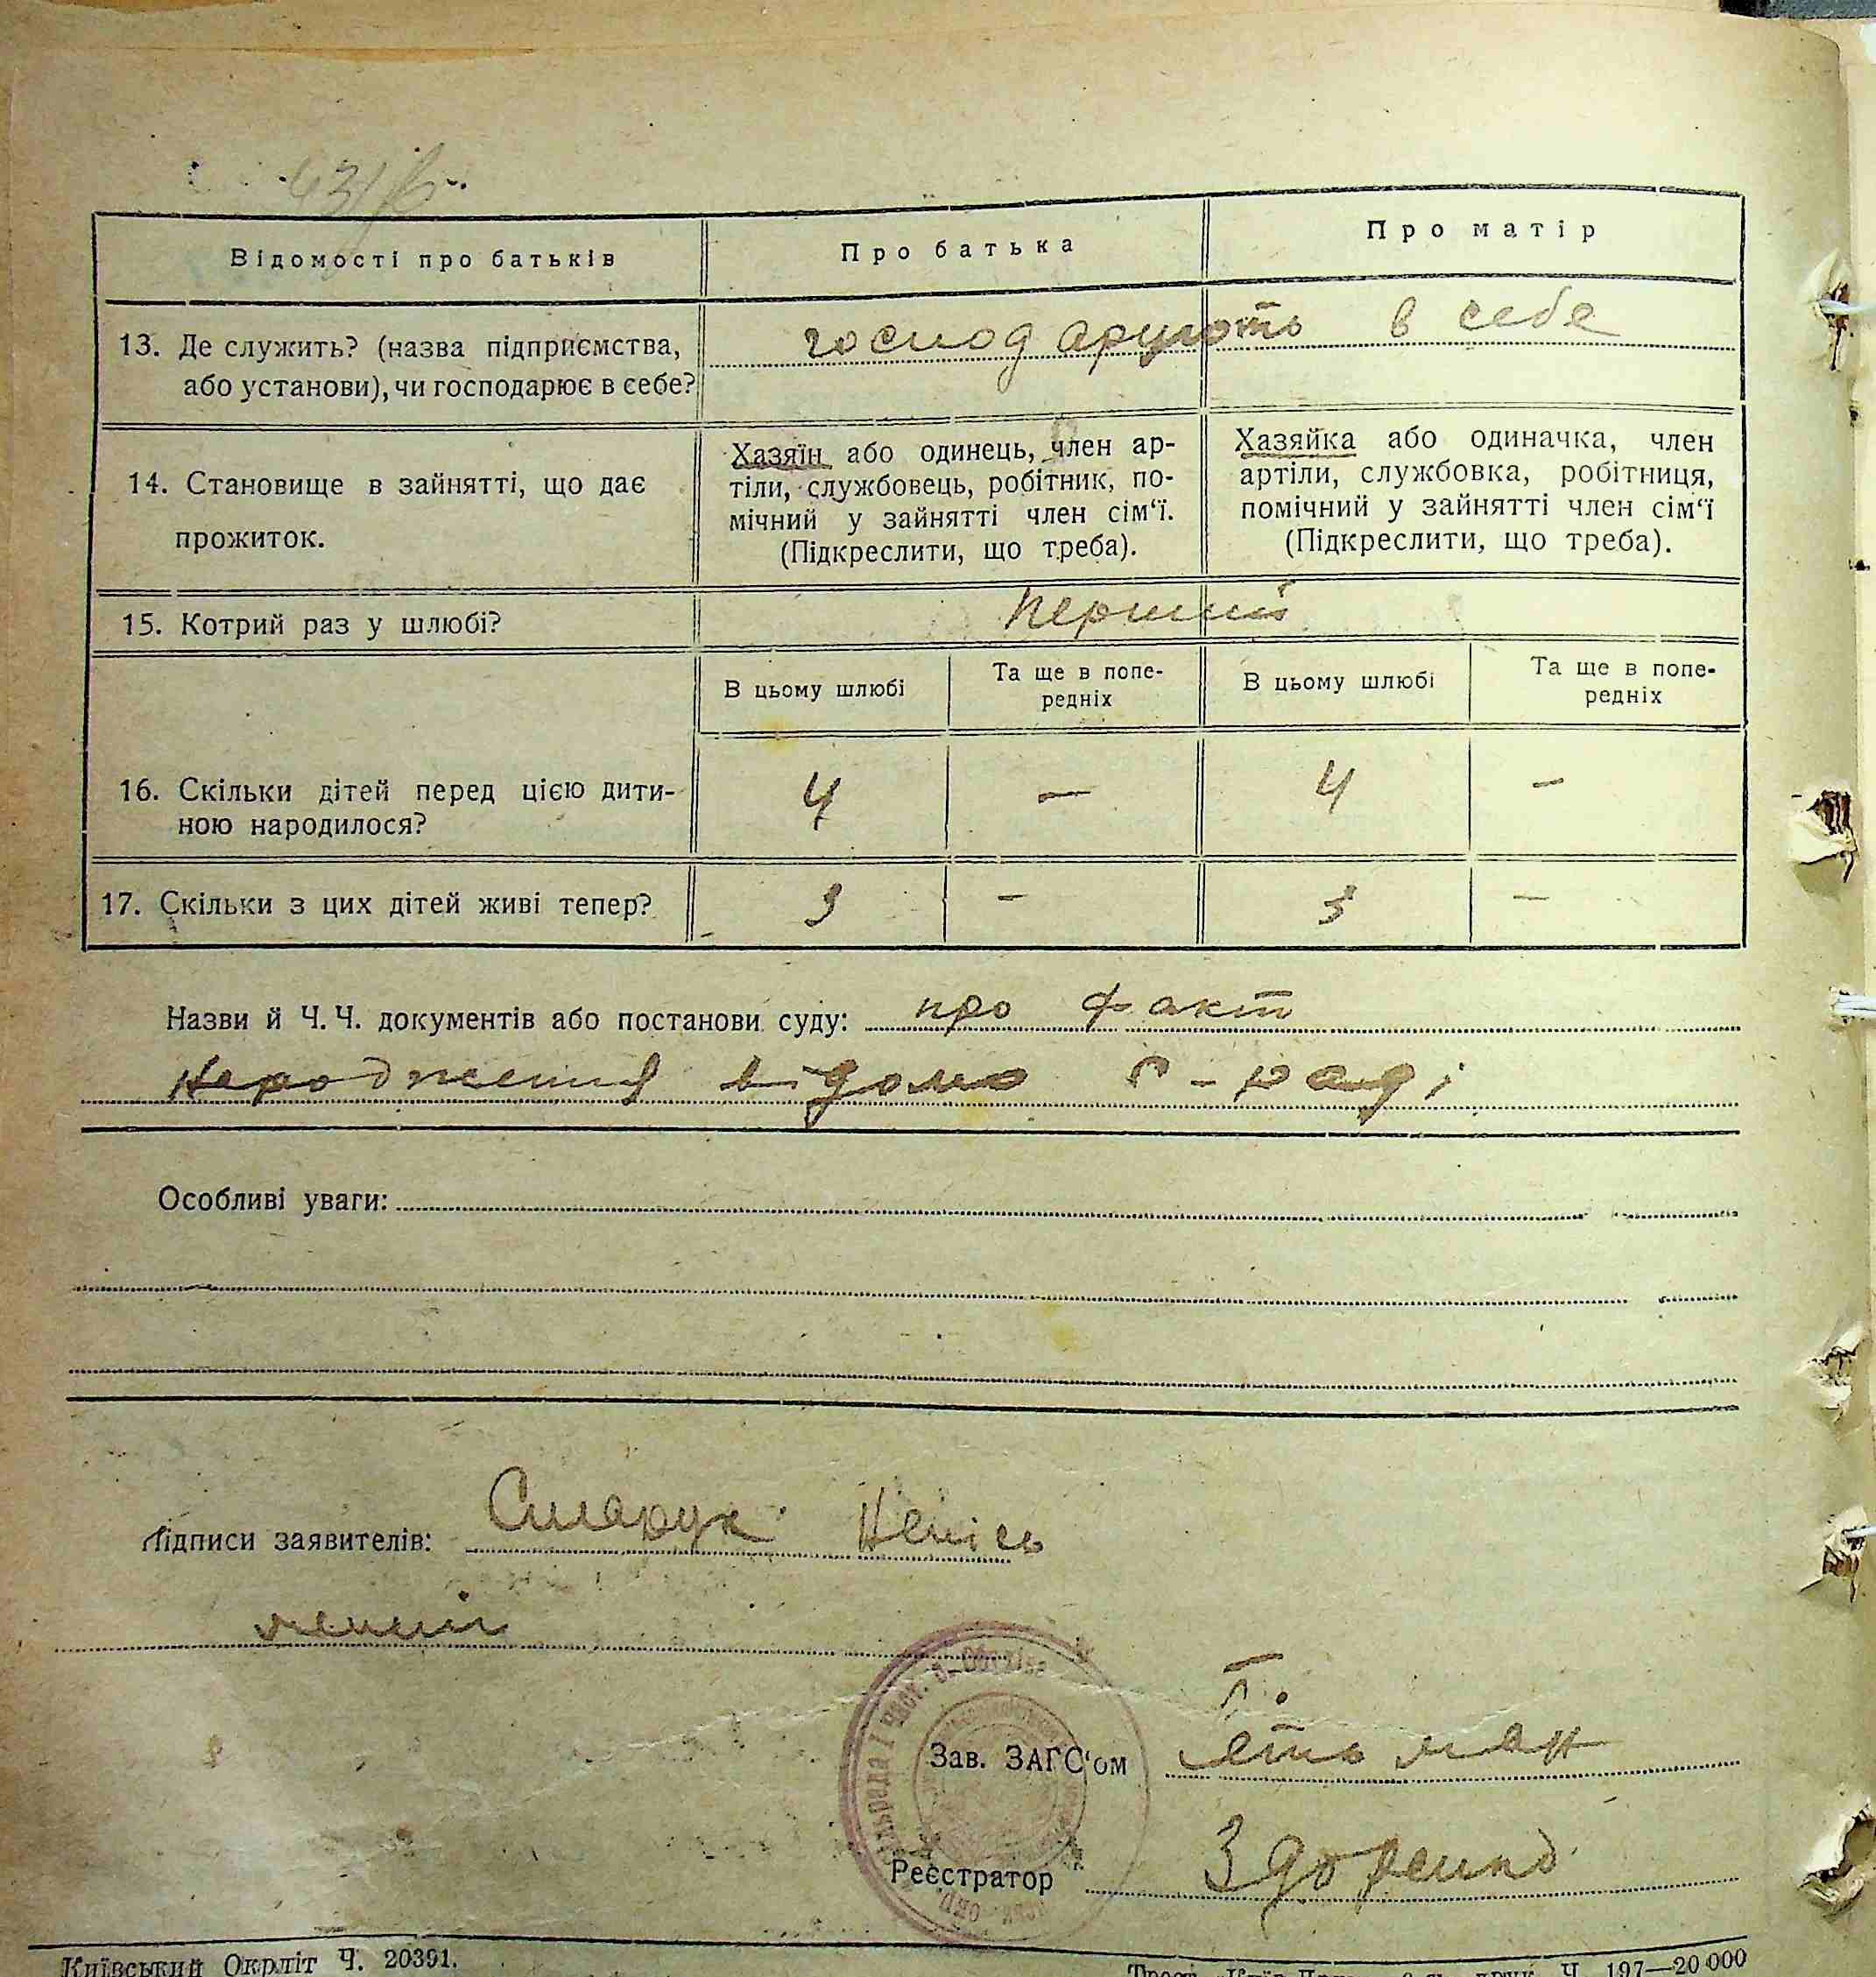 Відомості про батьків
Про батька
Про матір
13. Де служить? (назва підприємства,
або установи), чи господарює в себе?
господарують в себе
14. Становище в зайнятті, що дає
прожиток.
Хазяїн або одинець, член ар-
тіли, службовець, робітник, по-
мічний у зайнятті член сім‘ї.
(Підкреслити, що треба).
Хазяйка або одиначка, член
артіли, службовка, робітниця,
помічний у зайнятті член сім‘ї
(Підкреслити, що треба).
15. Котрий раз у шлюбі?
перший
В цьому шлюбі
Та ще в попе-
редніх
В цьому шлюбі
Та ще в попе-
редніх
16. Скільки дітей перед цією дити-
ною народилося?
4 — 4 —
17. Скільки з цих дітей живі тепер?
3 — 3 —
Назви й Ч. Ч. документів або постанови суду: про факт
народження відомо с-раді
Особливі уваги:
Підписи заявителів:
Зав. ЗАГС‘ом
Реєстратор
Київський Окрліт Ч. 20391.
друк. Ч. 197—20 000